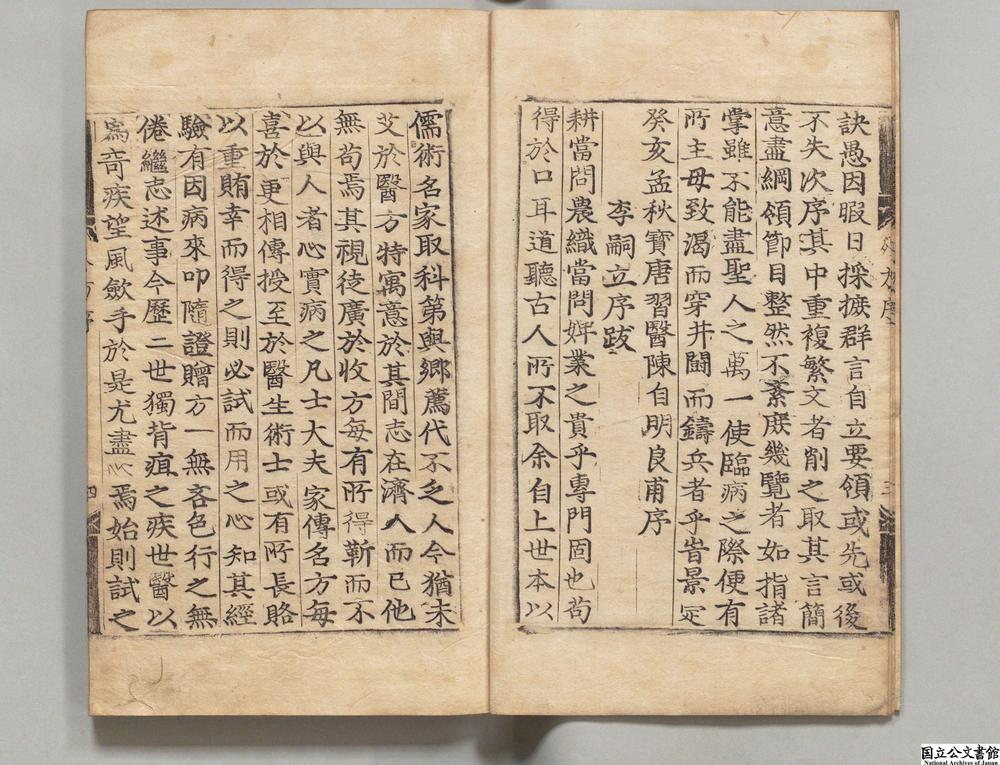 訣愚因暇日採摭群言自立要領或先或後
不失次序其中重複繁文者削之取其言簡
意盡綱領節目整然不紊庶幾覽者如指諸
掌雖不能盡聖人之萬一使臨病之際便有
所主毋致渴而穿井鬪而鑄兵者乎旹景定
癸亥孟秋寶唐習醫陳自明良甫序
李嗣立序跋
耕當問農織當問婢業之貴乎專門固也苟
得於口耳道聽古人所不取余自上世本以
儒術名家取科第與鄉薦代不乏人今猶未
艾於醫方特寓意於其間志在濟人而已他
無苟焉其視徒廣於收方每有所得靳而不
以與人者心實病之凡士大夫家傳名方每
喜於更相傳授至於醫生術士或有所長賂
以重賄幸而得之則必試而用之心知其經
驗有因病來叩隨證贈方一無吝色行之無
倦繼志述事今歷二世獨背疽之疾世醫以
爲奇疾望風斂手於是尤盡心焉始則試之
四
国立公文書館
National Archives of Japan